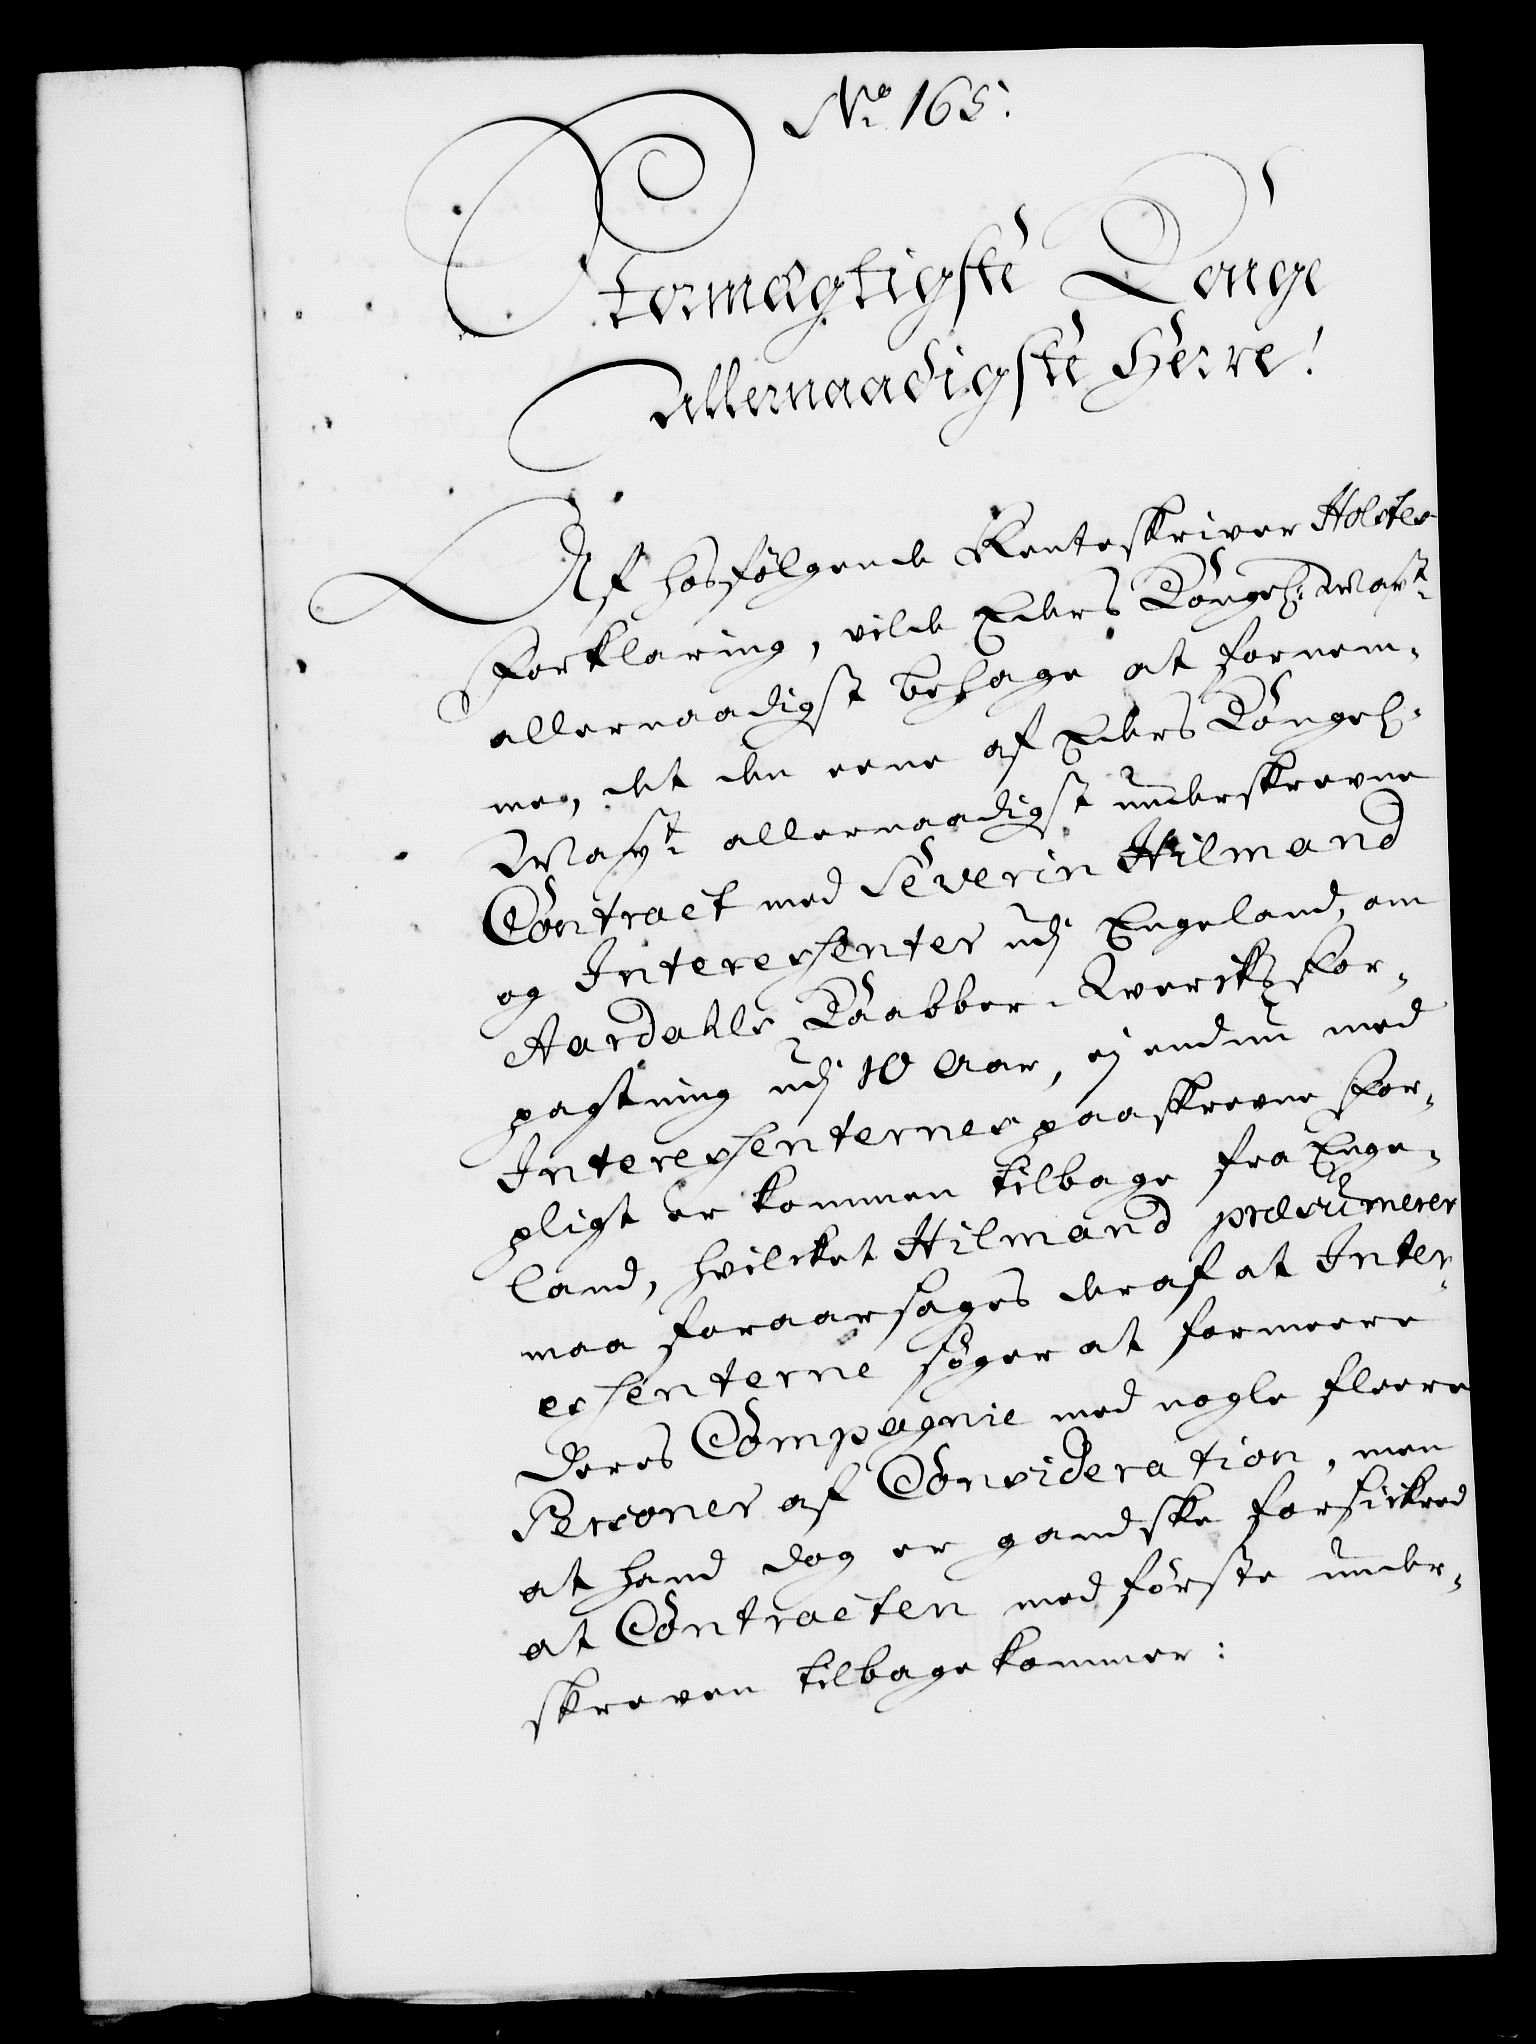 No 165.
Stormægtigste Konge
Allernaadigste Herre!
Af hosfølgende Renteskriver Holstes
Forklaring, vilde Eders Kongel: Mayst:
allernaadigst behage at fornem-
me, det den eene af Eders Kongel:
Mayst: allernaadigst underskrevne
Contract med Severin Hilmand
og Interessenter udj Engeland, om
Aardahls Kaabber-Wercks For-
pagtning udj 10 Aar, ej endnu med
Interessenternes paaskrevne For-
pligt er kommen tilbage fra Enge-
land, hvilcket Hilmand præsumerer
maa foraarsages deraf at Inter-
essenterne søger at formeere
Deres Compagnie med nogle fleere
Persones af Consideration, men
at hand dog er gandske forsickred
at Contracten med første under-
skreven tilbagekommer: